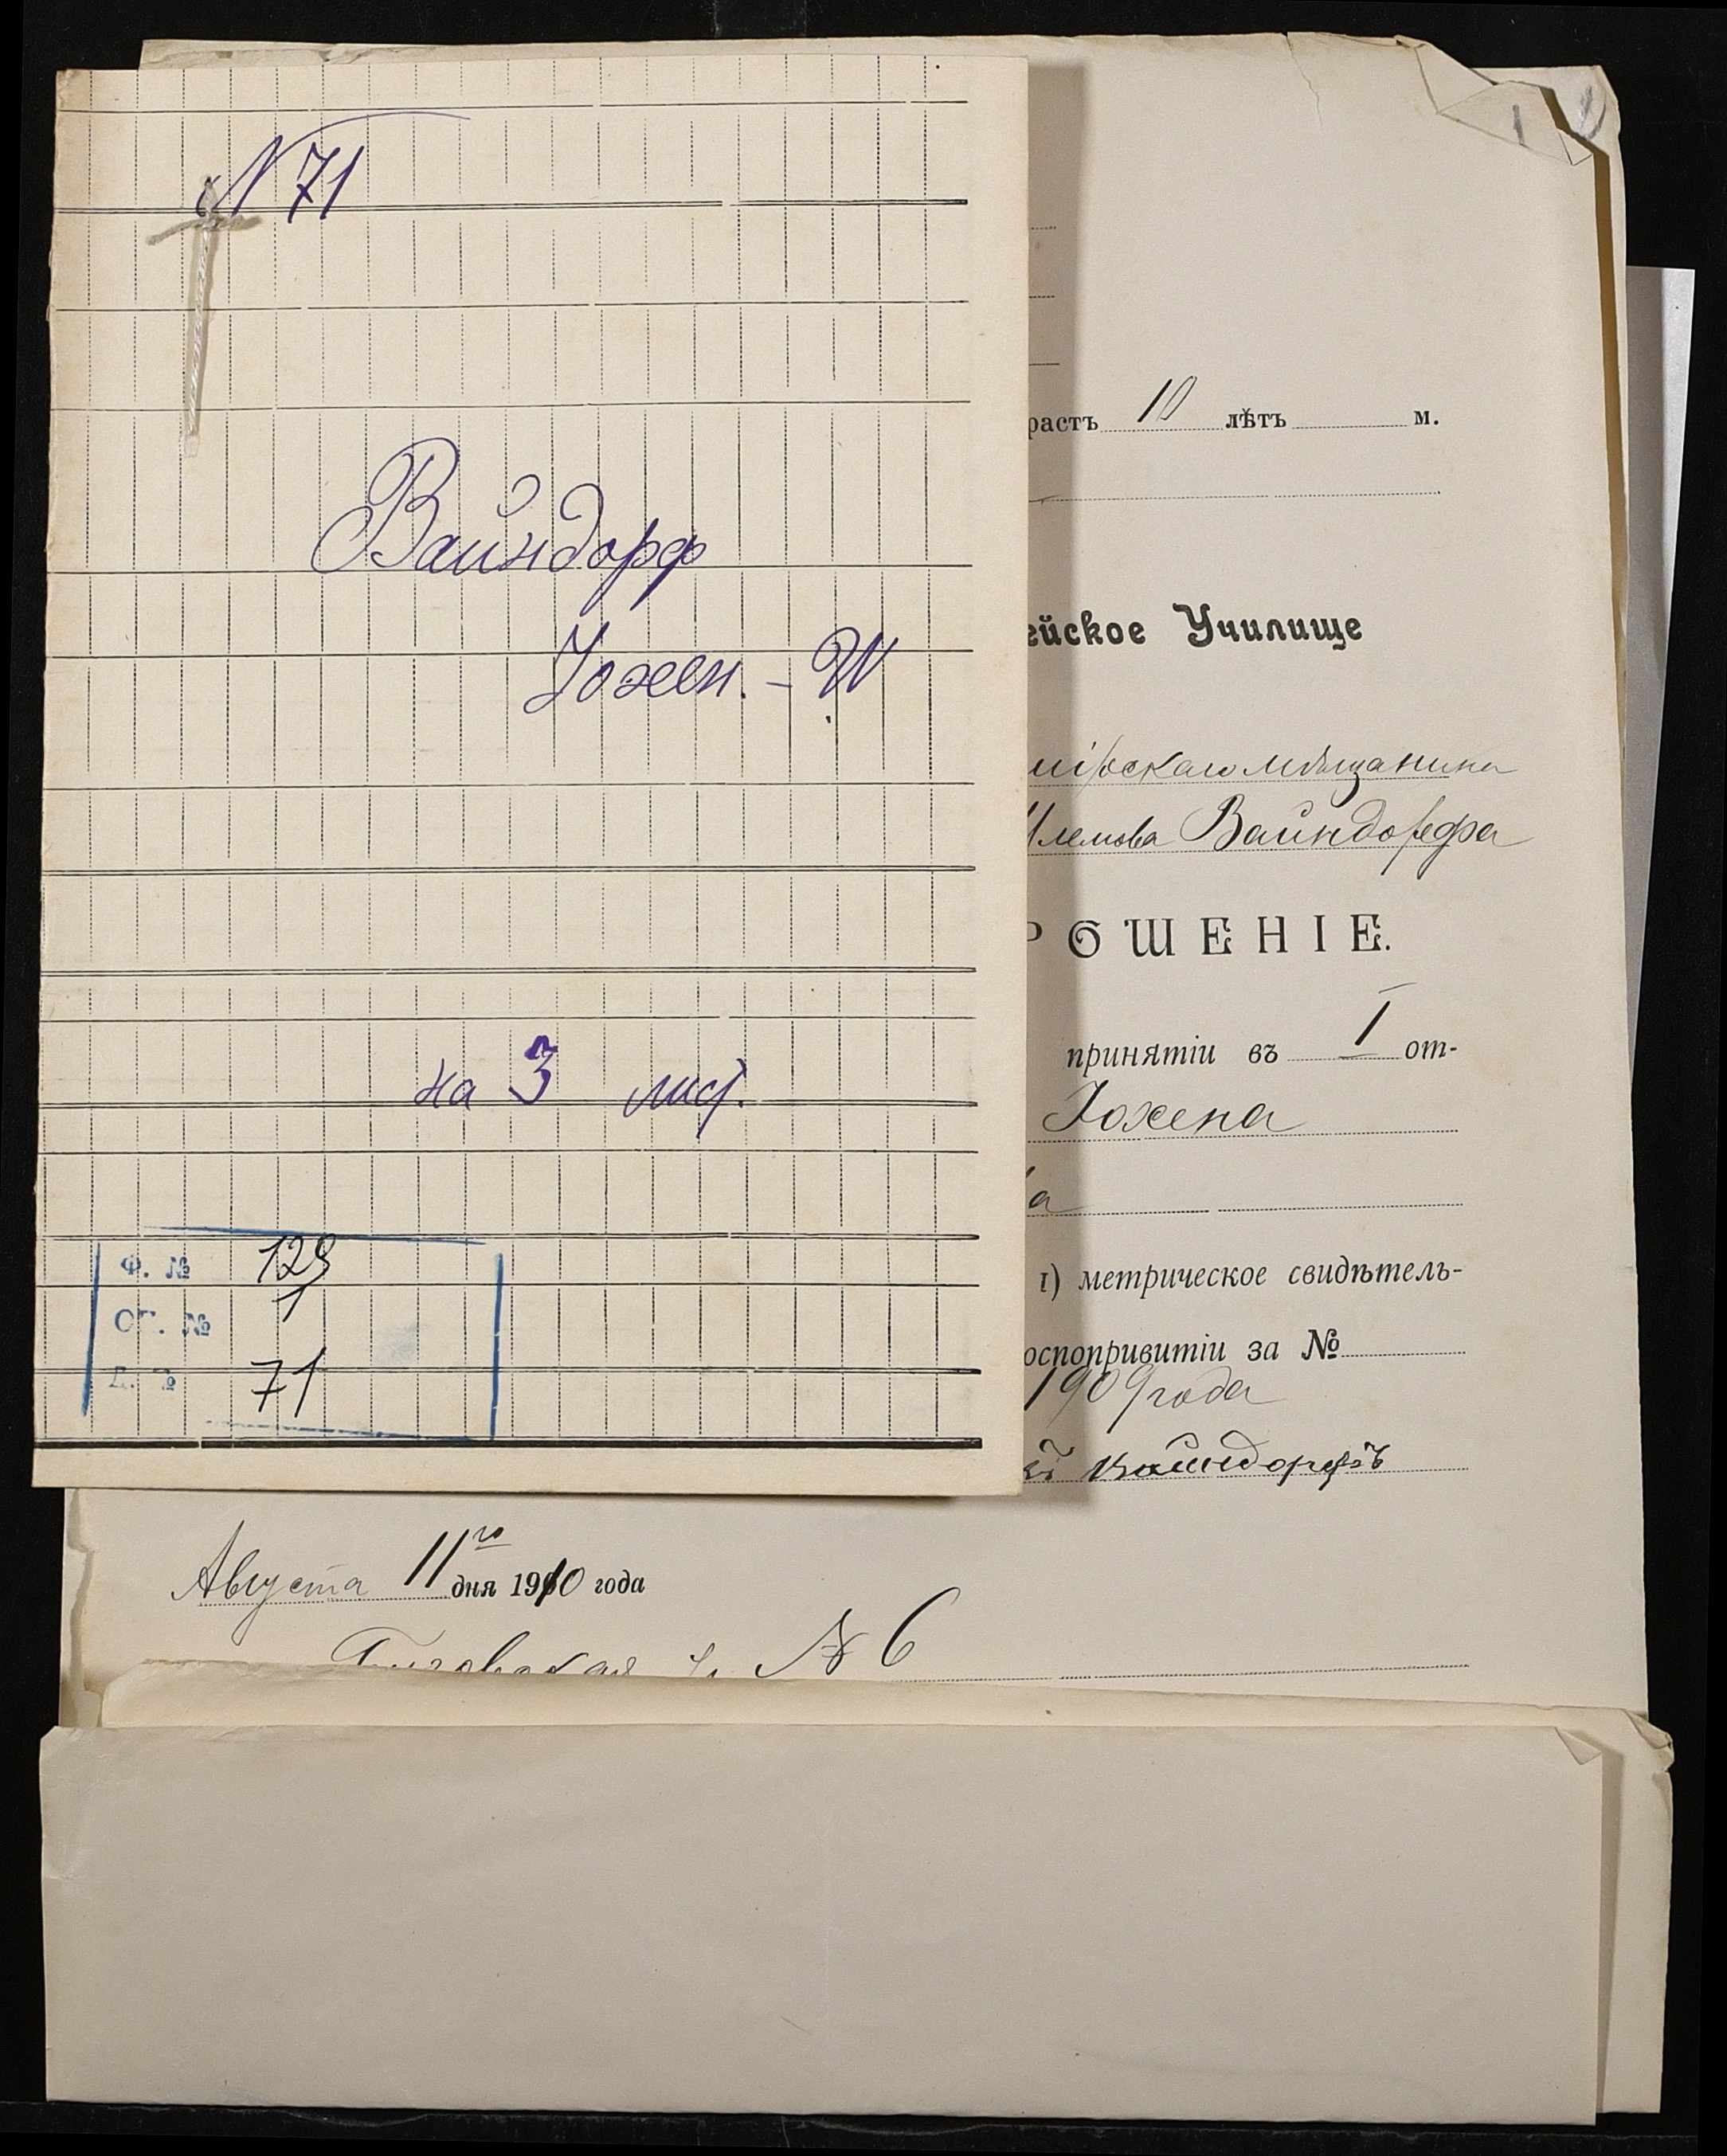 N 71
Вайндорф
Иохен. - Ш
на 3 лист.
Ф. № 129
ОП. № 1
Д. № 71
1
растъ 10 лѣтъ м.
ейское Училище
мірскаго мѣщанина
Шлемова Вайндорфа
РОШЕНІЕ.
принятіи въ I от-
Іохена
а
1) метрическое свидѣтель-
оспопривитіи за №
1909 года
Вайндорфъ
Августа 11го дня 1910 года
№ 6